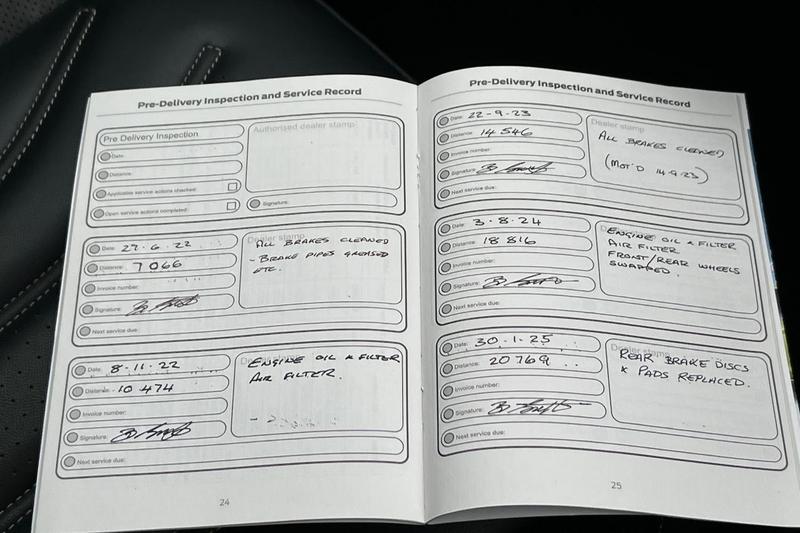 Pre-Delivery Inspection and Service Record
Pre Delivery Inspection
Date:
Distance:
Applicable service actions checked:
Open service actions completed:
Authorised dealer stamp
Signature:
Date: 27·6·22
Distance: 7066
Invoice number:
Signature:
Next service due:
Dealer stamp
ALL BRAKES CLEANED
- BRAKE PIPES GREASED
ETC.
Date: 8·11·22
Distance: 10 474
Invoice number:
Signature:
Next service due:
Dealer stamp
ENGINE OIL & FILTER
AIR FILTER.
24
Pre-Delivery Inspection and Service Record
Date: 22-9-23
Distance: 14 546
Invoice number:
Signature:
Next service due:
Dealer stamp
ALL BRAKES CLEANED
(MOT'D 14·9·23)
Date: 3·8·24
Distance: 18 816
Invoice number:
Signature:
Next service due:
Dealer stamp
ENGINE OIL & FILTER
AIR FILTER
FRONT/REAR WHEELS
SWAPPED.
Date: 30·1·25
Distance: 20769
Invoice number:
Signature:
Next service due:
Dealer stamp
REAR BRAKE DISCS
& PADS REPLACED.
25